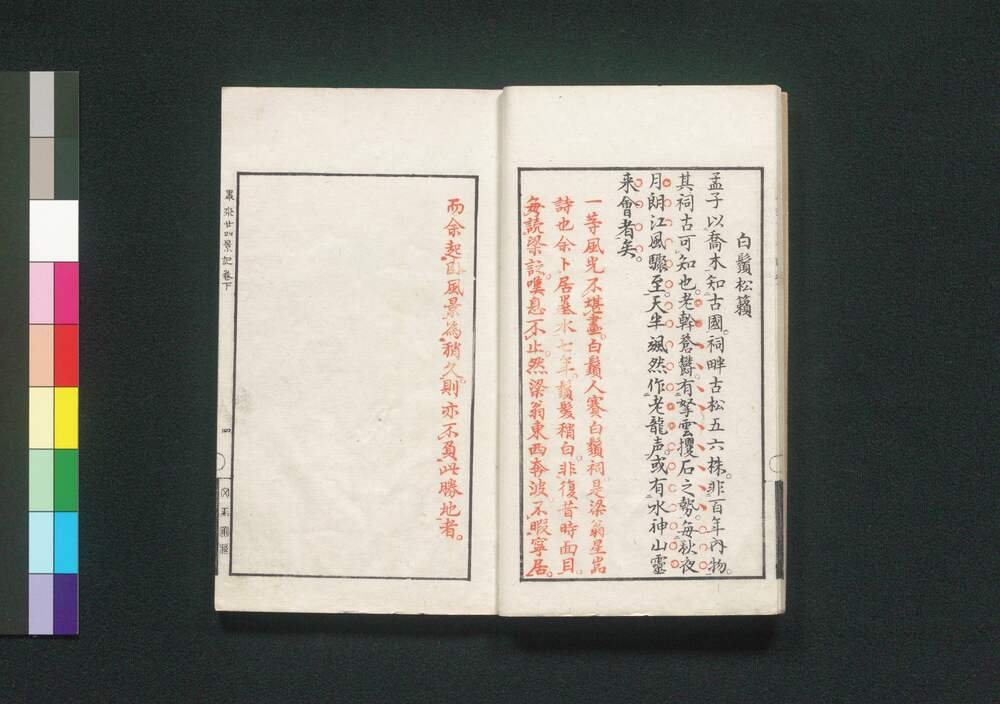 白鬚松籟
孟子以喬木知古國。祠畔古松五六株。非百年内物。
其祠古可知也。老幹蒼欝。有拏雲攫石之勢。毎秋夜
月朗江風驟至。天半颯然作老龍声。或有水神山靈
来會者矣。
一等風光不堪畫。白鬚人賽白鬚祠。是梁翁星岩
詩也。余卜居墨水七年。鬚髮稍白。非復昔時面目。
毎読梁詩。嘆息不止。然梁翁東西奔波。不暇寧居。
而余起臥風景為稍久。則亦不負此勝地者。
廿四景記 卷下
四